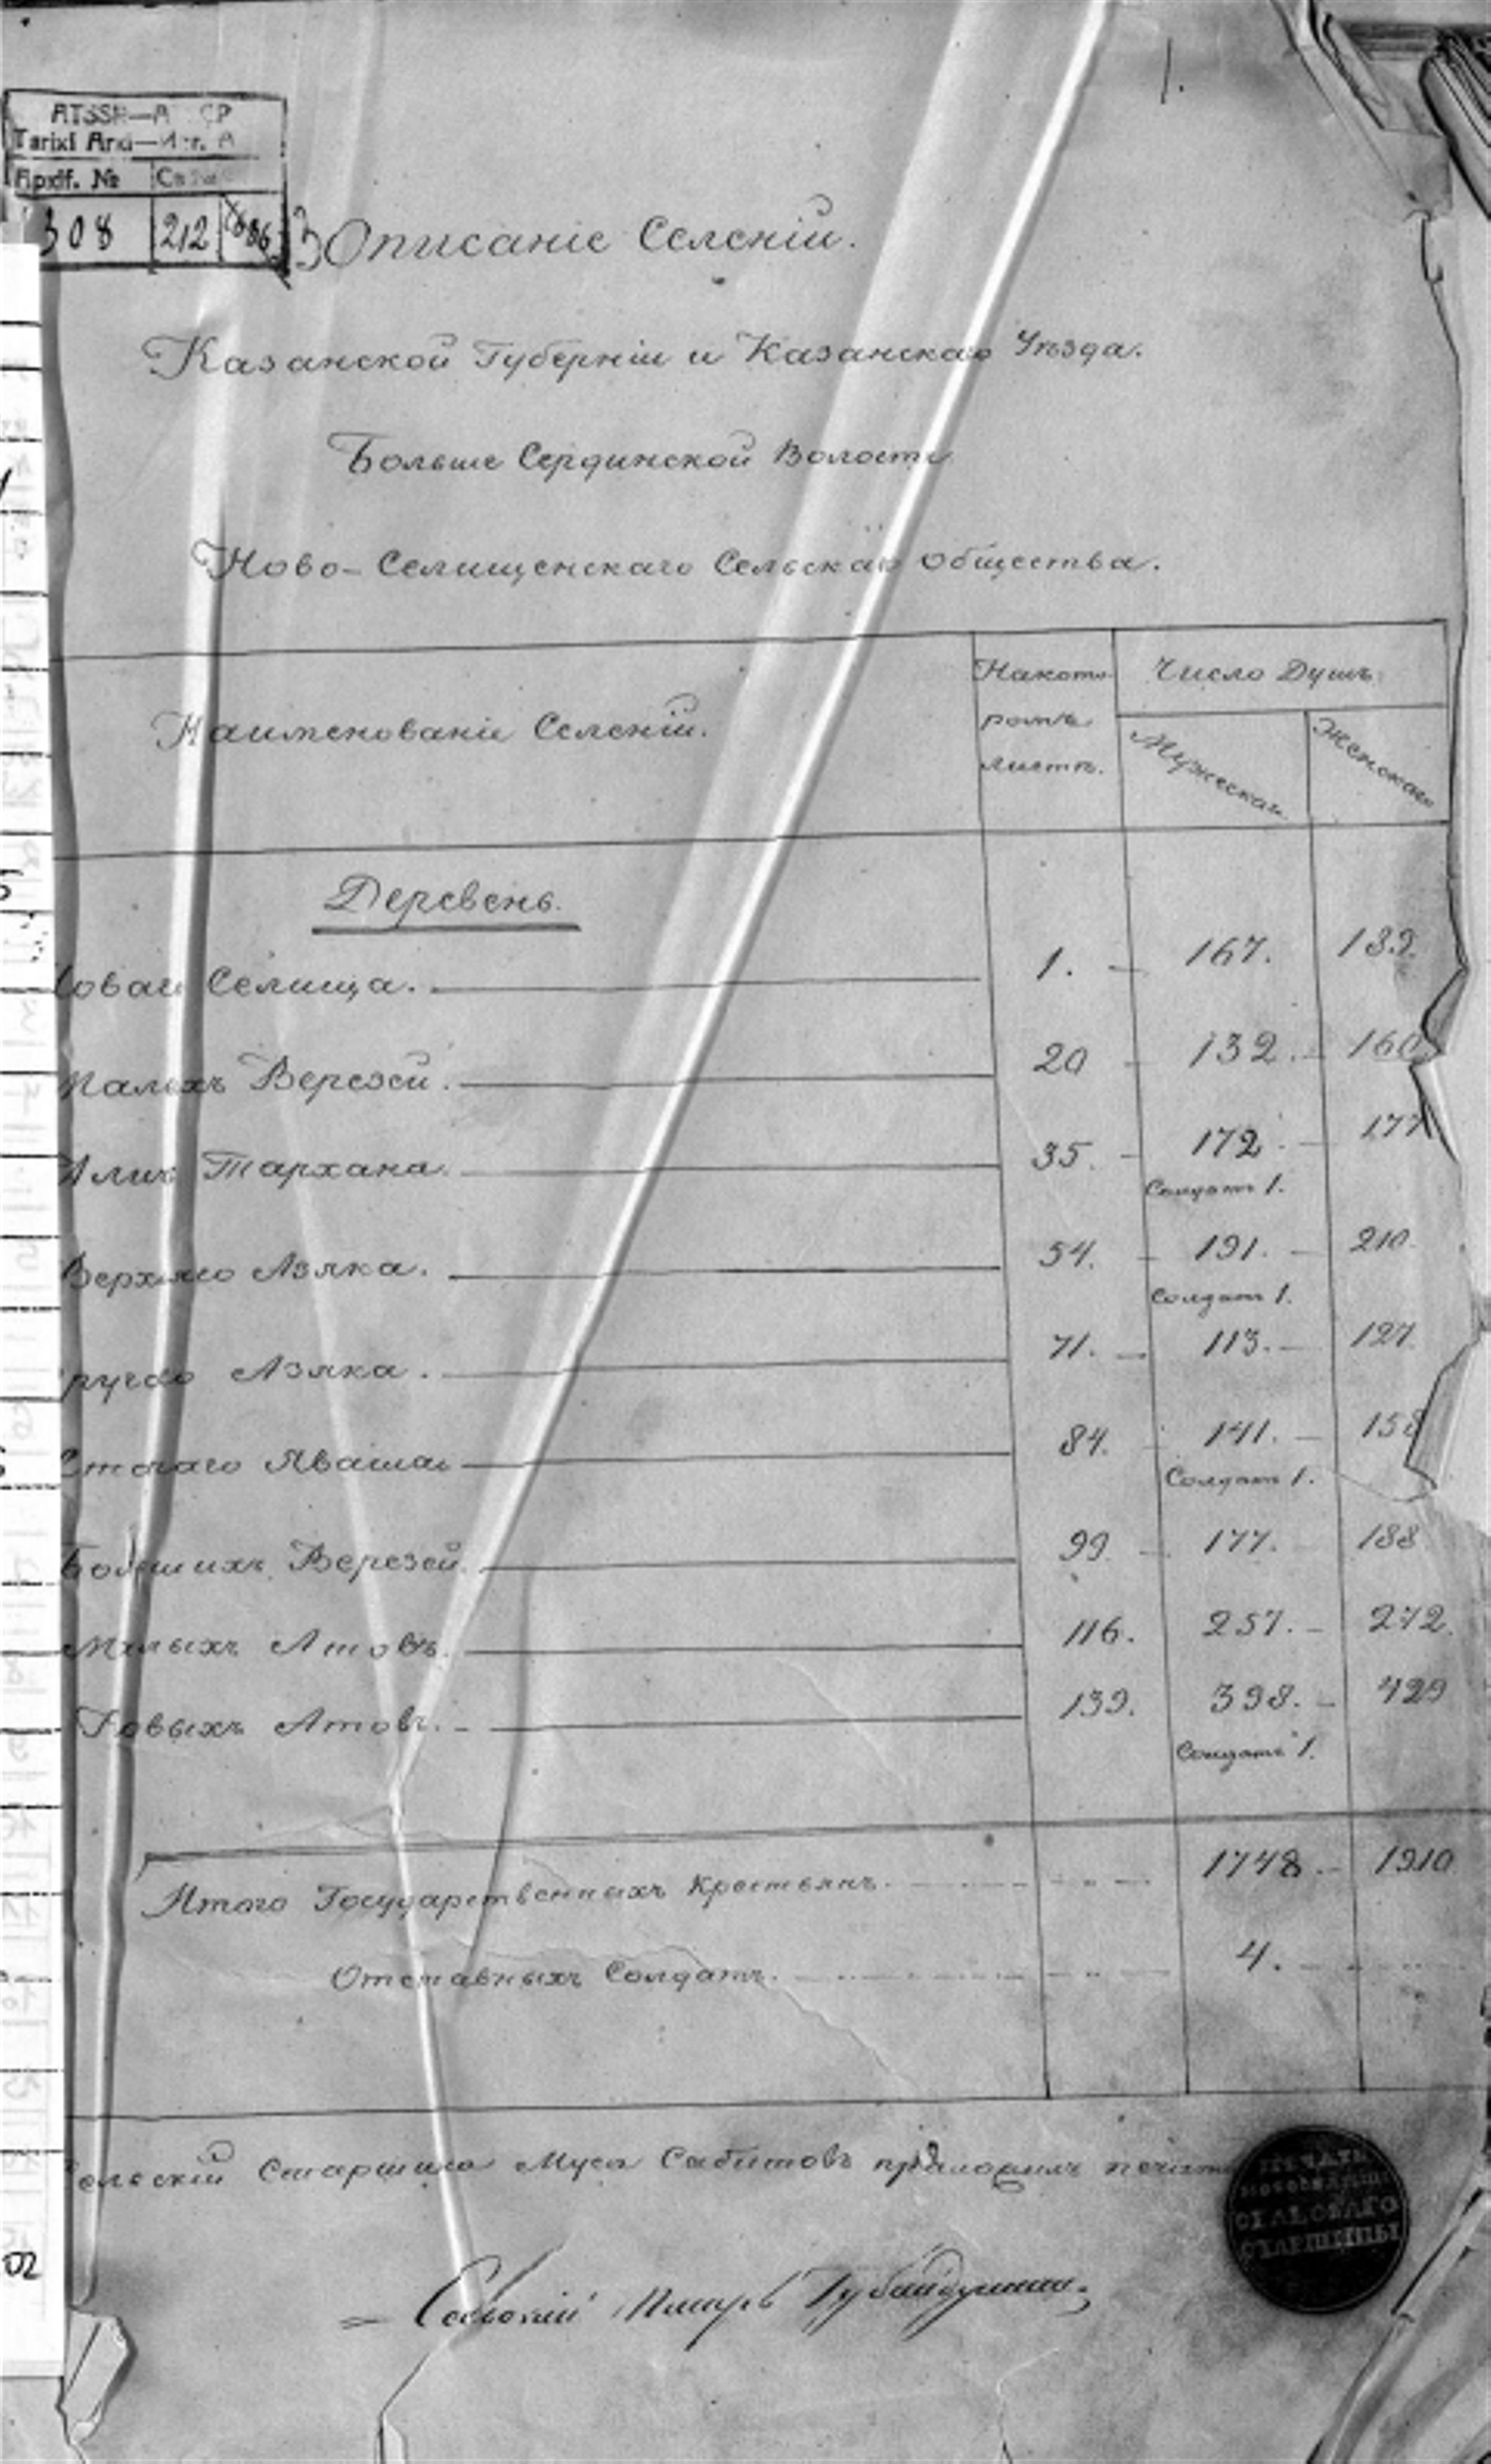 1.
ATSSR—A СР
Tarixi Arxi—Ист. А
Apxif. №
308 212 886
Описаніе Селеній.
Казанской Губерніи и Казанскаго Уѣзда.
Больше Сердинской Волости
Ново-Селищенскаго Сельскаго общества.
Наименованіе Селеній. На кото- ромъ листѣ. Число Душъ
Мужескаго Женскаго
Деревень.
Новаго Селища. 1. 167. 189.
Малыхъ Верезей. 20 132. 160
Алик Тархана. 35. 172. 177
Солдатъ 1.
Верхняго Азяка. 54. 191. 210.
Солдатъ 1.
Другаго Азяка. 71. 113. 127.
Отараго Яваша 84. 141. 158
Солдатъ 1.
Большихъ Верезей. 99. 177. 188
Малыхъ Атовъ. 116. 257. 272.
Новыхъ Атовъ. 139. 398. 429
Солдатъ 1.
Итого Государственныхъ Крестьянъ. 1748. 1910
Отставныхъ Солдатъ. 4.
Сельскій Старшина Муса Сабитовъ приложилъ печать
ПЕЧАТЬ
НОВОСЕЛИЩ
СЕЛЬСКАГО
СТАРШИНЫ
Сельскій Писарь Губайдуллин